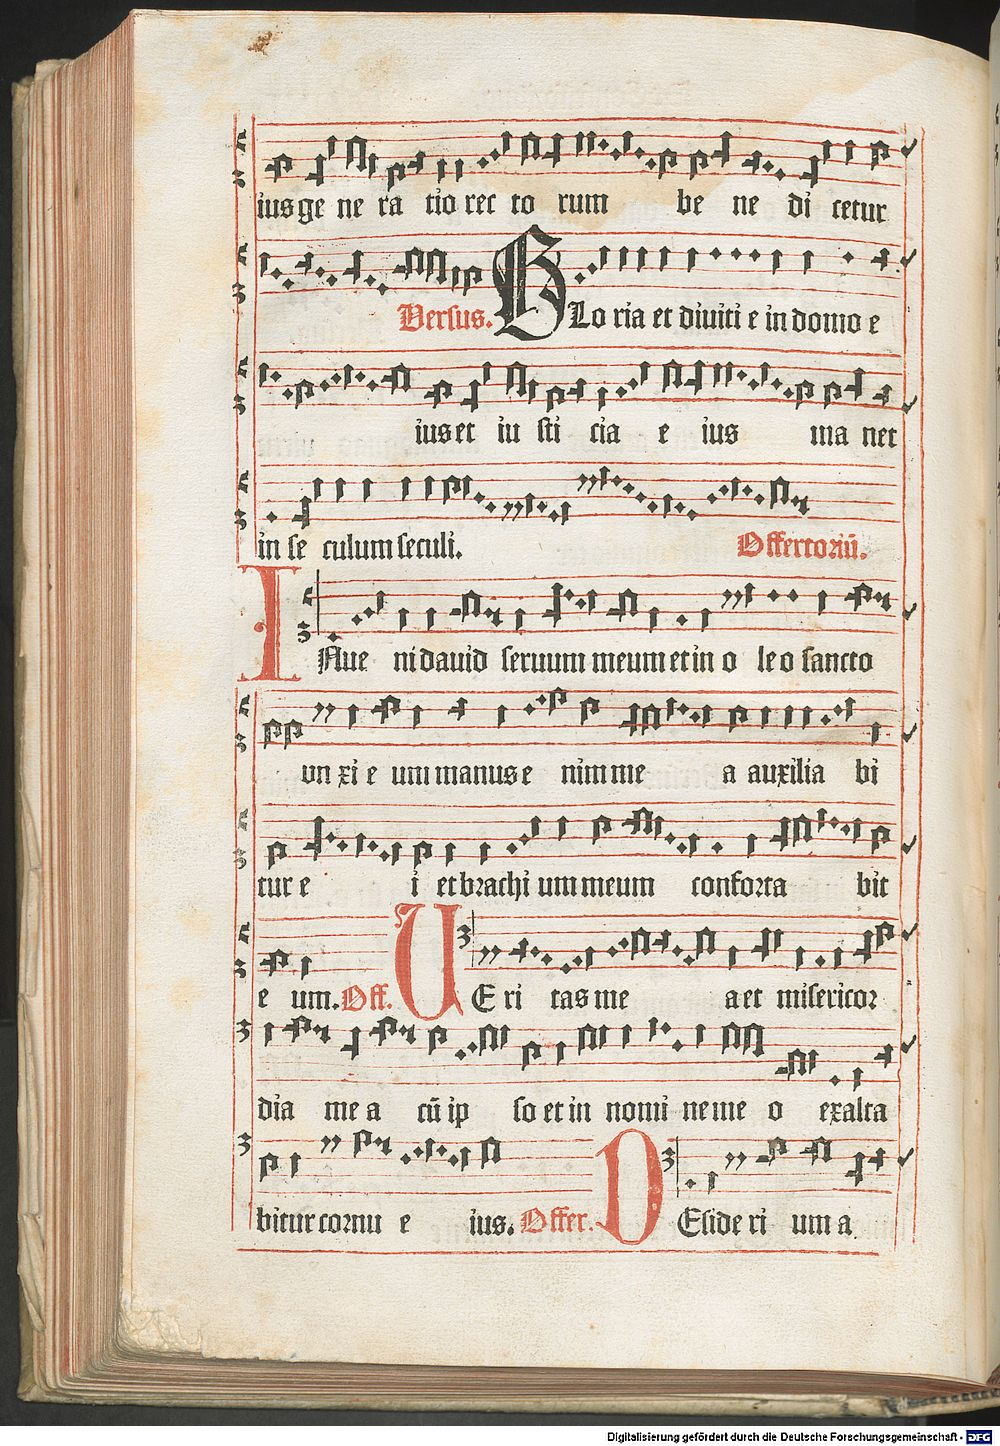 ius ge ne ra tio rec to rum be ne di cetur
Versus. GLo ria et diuiti e in domo e
ius et iu sti cia e ius ma net
in se culum seculi. Offertoriū.
INue ni dauid seruum meum et in o le o sancto
vn xi e um manus e nim me a auxilia bi
tur e i et brachi um meum conforta bit
e um. Off. UEri tas me a et misericor
dia me a cū ip so et in nomi ne me o exalta
bitur cornu e ius. Offer. DEside ri um a
Digitalisierung gefördert durch die Deutsche Forschungsgemeinschaft - DFG